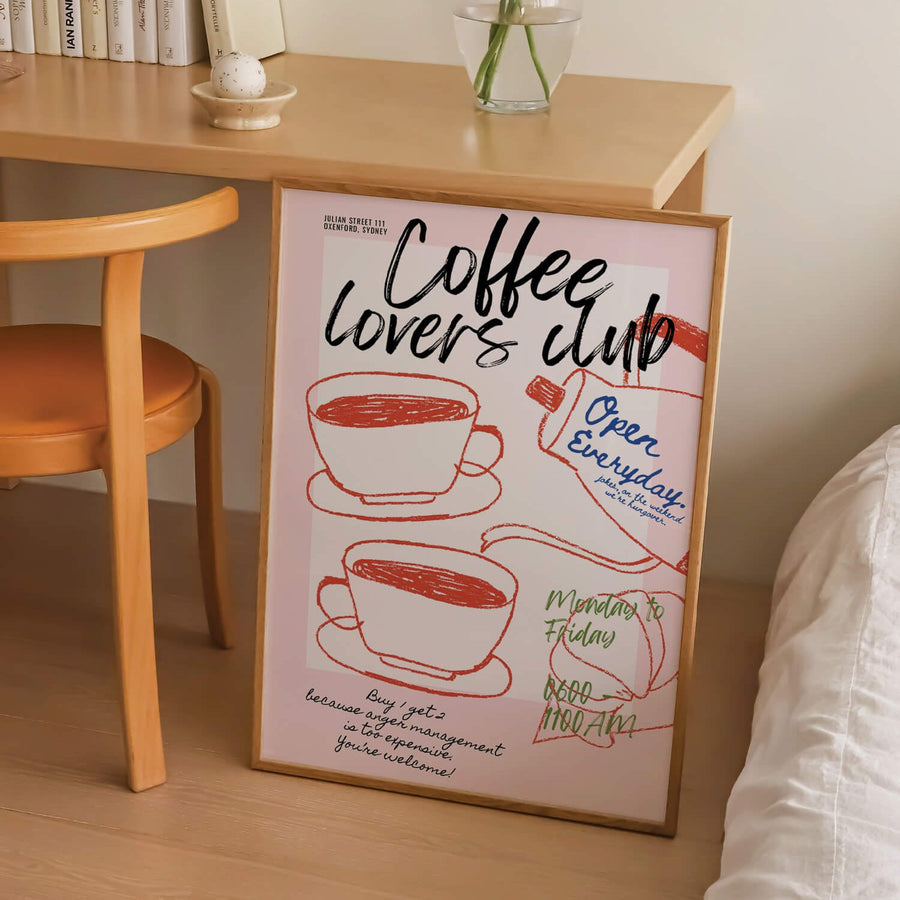 DOMINO
IAN RAN
PRINCESS
Alan Tur
PRINCESS
STORYTELLER
JULIAN STREET 111
OXENFORD, SYDNEY
Coffee
lovers club
Open
Everyday.
jokes, on the weekend
we're hungover.
Monday to
Friday
0600 -
1100 AM
Buy 1 get 2
because anger management
is too expensive.
You're welcome!